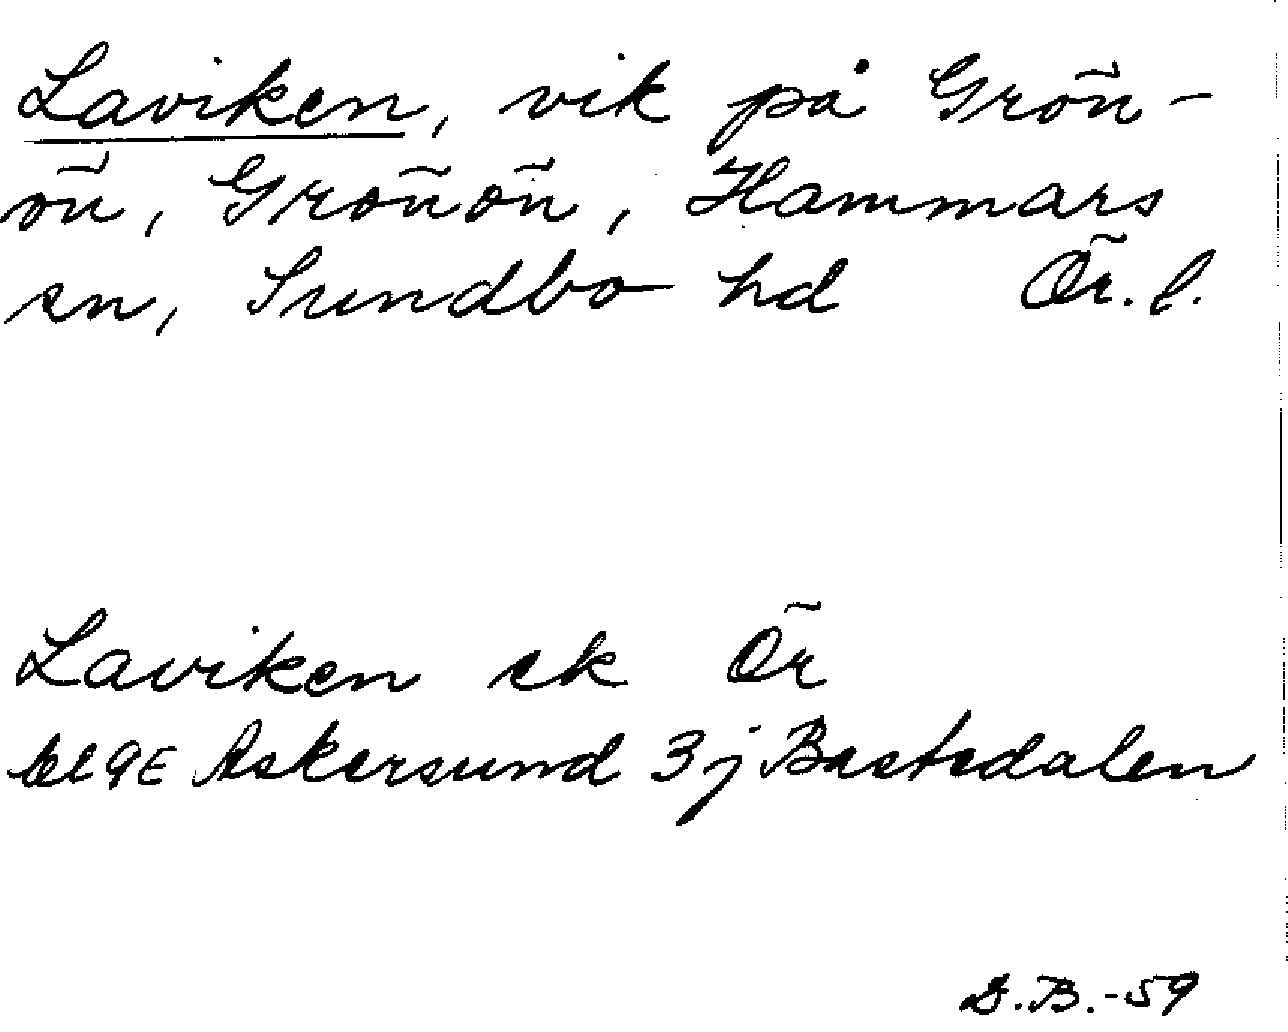 Laviken, vik på Grön-
ön, Grönön, Hammars
sn, Sundbo hd Ör. l.
Laviken ek Ör
bl 9E Askersund 3j Bastedalen
D.B.-59